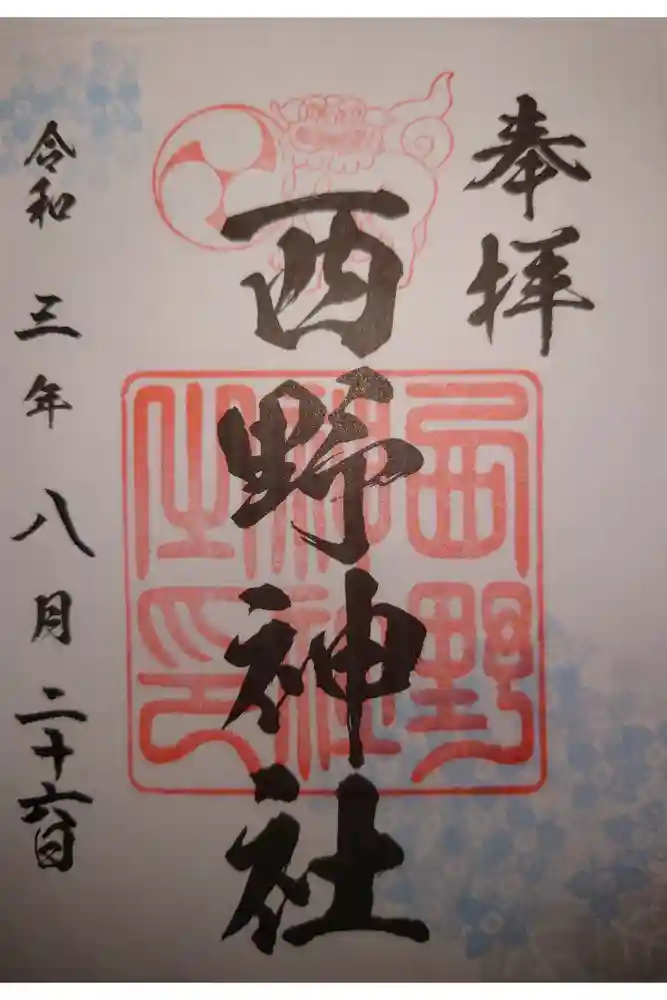 奉拝
西野神社
西野神社之印
令和三年八月二十六日